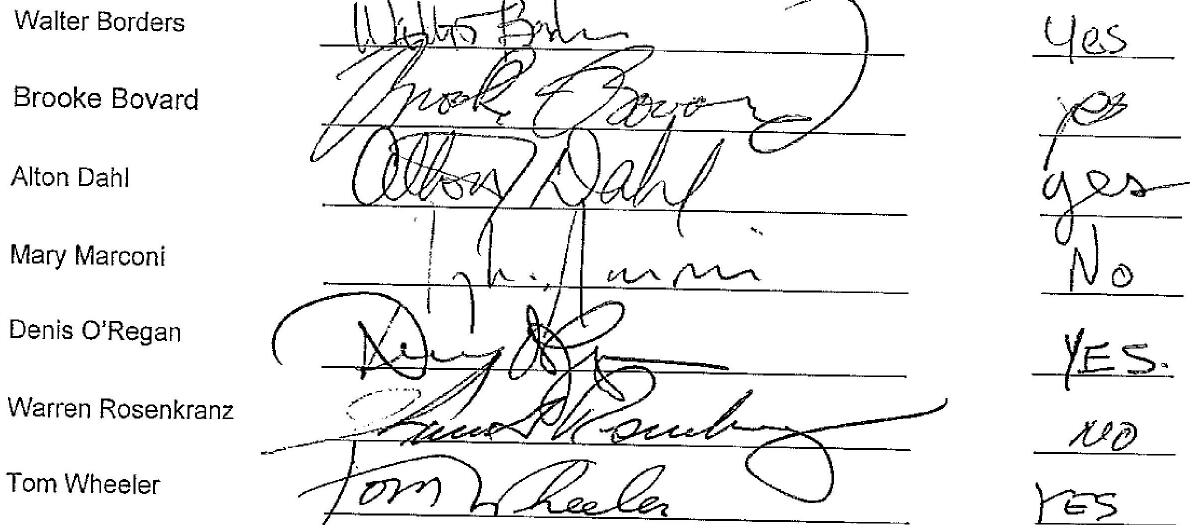 Walter Borders Walter Borders Yes
Brooke Bovard Brooke Bovard yes
Alton Dahl Alton Dahl yes
Mary Marconi No
Denis O'Regan YES.
Warren Rosenkranz NO
Tom Wheeler Tom Wheeler YES